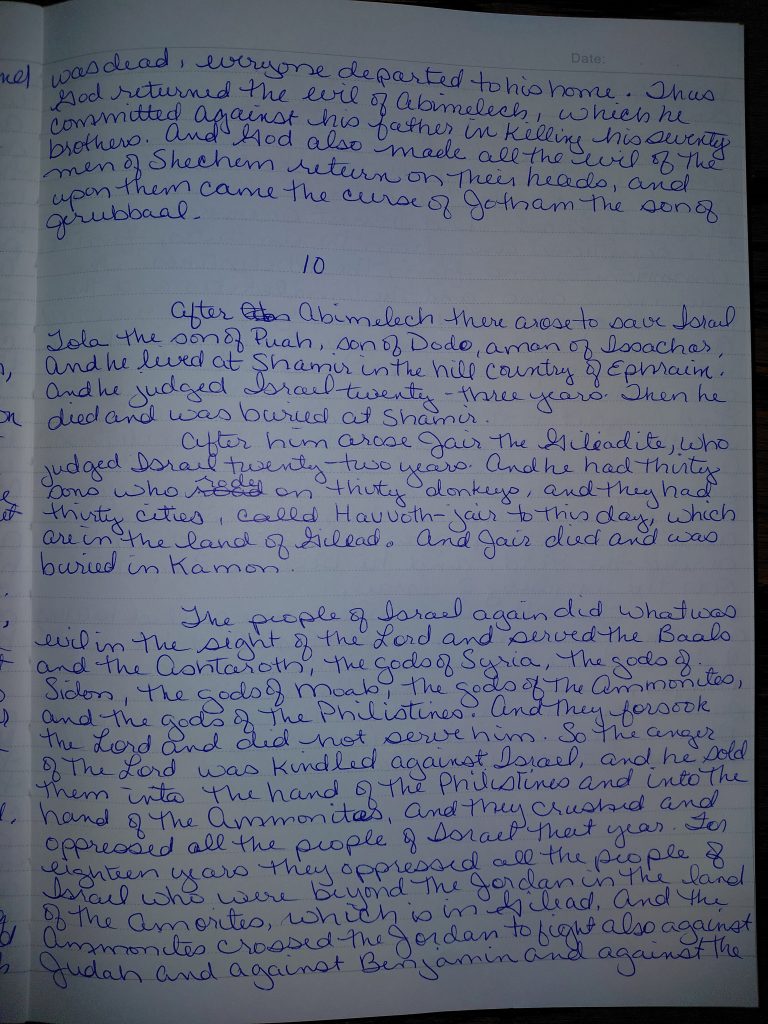 Date:
was dead, everyone departed to his home. Thus
God returned the evil of Abimelech, which he
committed against his father in killing his seventy
brothers. And God also made all the evil of the
men of Shechem return on their heads, and
upon them came the curse of Jotham the son of
Jerubbaal.
10
After Abimelech there arose to save Israel
Tola the son of Puah, son of Dodo, a man of Issachar,
And he lived at Shamir in the hill country of Ephraim.
And he judged Israel twenty-three years. Then he
died and was buried at Shamir.
After him arose Jair the Gileadite, who
judged Israel twenty-two years. And he had thirty
sons who rode on thirty donkeys, and they had
thirty cities, called Havvoth-jair to this day, which
are in the land of Gilead. And Jair died and was
buried in Kamon.
The people of Israel again did what was
evil in the sight of the Lord and served the Baals
and the Ashtaroth, the gods of Syria, the gods of
Sidon, the gods of Moab, the gods of the Ammonites,
and the gods of the Philistines. And they forsook
the Lord and did not serve him. So the anger
of the Lord was kindled against Israel, and he sold
them into the hand of the Philistines and into the
hand of the Ammonites, and they crushed and
oppressed all the people of Israel that year. For
eighteen years they oppressed all the people of
Israel who were beyond the Jordan in the land
of the Amorites, which is in Gilead. And the
Ammonites crossed the Jordan to fight also against
Judah and against Benjamin and against the